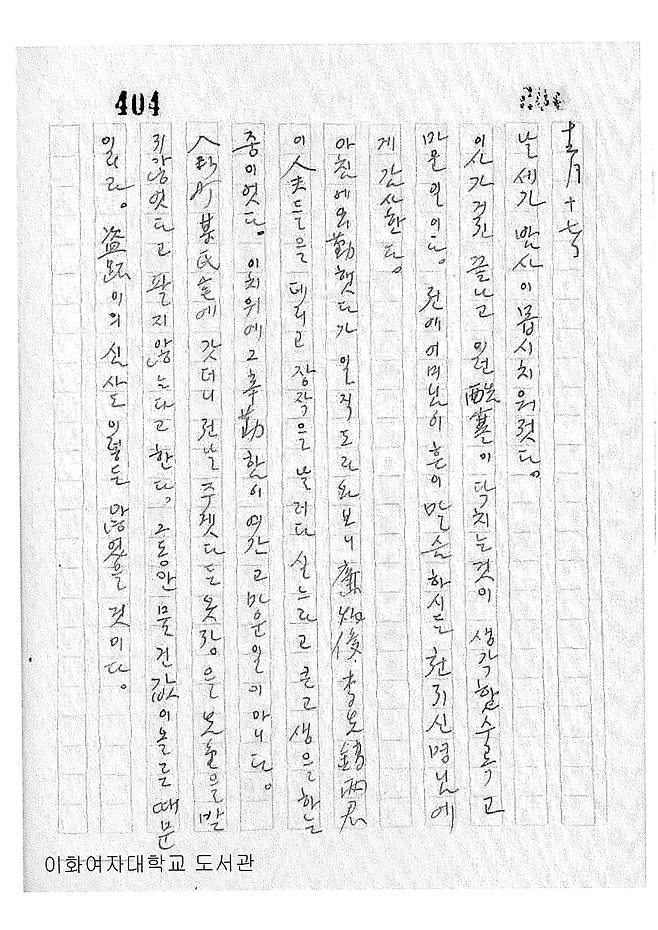 404
十二月 十七日
날세가 발사이 몹시 치워젓다.
이사가 거진 끝나고 이런 酷寒이 닥치는 것이 생각할수록 고
마운 일이다. 전에 어머님이 흔이 말슴하시든 천지신명님에
게 감사한다.
아침에 出勤했다가 일직 도라와보니 李 鎬 兩君
이 人夫들을 데리고 장작을 날러다 실느라고 큰 고생을 하는
중이엇다. 이 치위에 그 辛勤함이 여간 고마운 일이 아니다.
町 某氏宅에 갓더니 전날 주겟다든 옷장을 보고
고 팔지 않는다고 한다. 그동안 물건값이 올른 때문
일러라. 盜跖이의 심사도 이렇듯 않엇을 것이다.
이화여자대학교 도서관